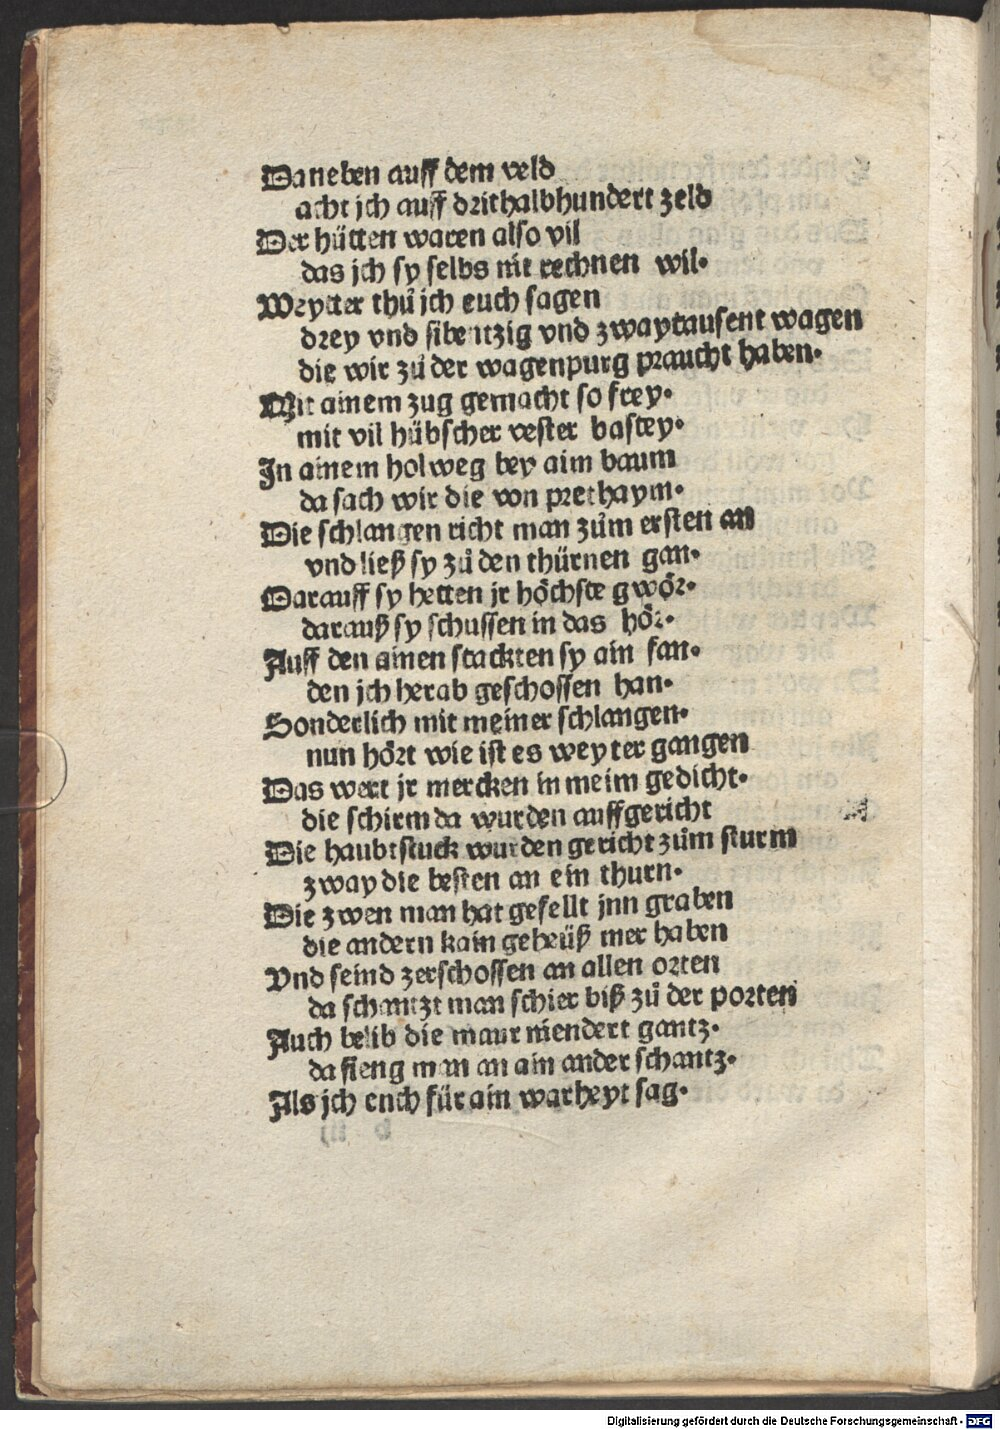 Daneben auff dem veld
acht jch auff drithalbhundert zeld
Der hütten waren also vil
das jch sy selbs nit rechnen wil.
Weytter thů jch euch sagen
drey vnd sibentzig vnd zwaytausent wagen
die wir zů der wagenpurg praucht haben.
Mit ainem zug gemacht so frey.
mit vil hübscher vester bastey.
In ainem holweg bey aim baum
da sach wir die von prethaym.
Die schlangen richt man zům ersten an
vnd ließ sy zů den thürnen gan.
Darauff sy hetten jr höchste gwör.
darauß sy schussen in das hör.
Auff den ainen stackten sy ain fan.
den jch herab geschossen han.
Sonderlich mit meiner schlangen.
nun hört wie ist es weyter gangen
Das wert jr mercken in meim gedicht.
die schirm da wurden auffgericht
Die haubtstuck wurden gericht zům sturm
zway die besten an ein thurn.
Die zwen man hat gefellt jnn graben
die andern kain geheüß mer haben
Vnd seind zerschossen an allen orten
da schantzt man schier biß zů der porten
Auch belib die maur niendert gantz.
da fieng man an ain ander schantz.
Als jch euch für ain warheyt sag.
Digitalisierung gefördert durch die Deutsche Forschungsgemeinschaft - DFG